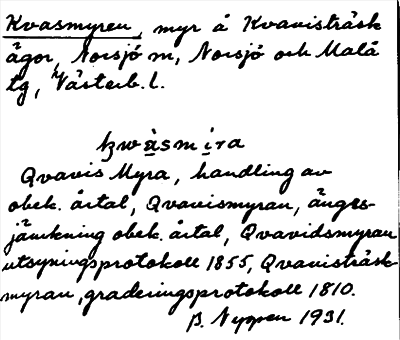 Kvasmyren, myr å Kvavisträsk
ägor, Norsjö sn, Norsjö och Malå
tg, Västerb. l.
kwàsmira
Qvavis Myra, handling av
obek. årtal, Qvavismyran, änges-
jämkning obek. årtal, Qvavidsmyran
utsyningsprotokoll 1855, Qvavisträsk-
myran, graderingsprotokoll 1810.
B. Nyppen 1931.